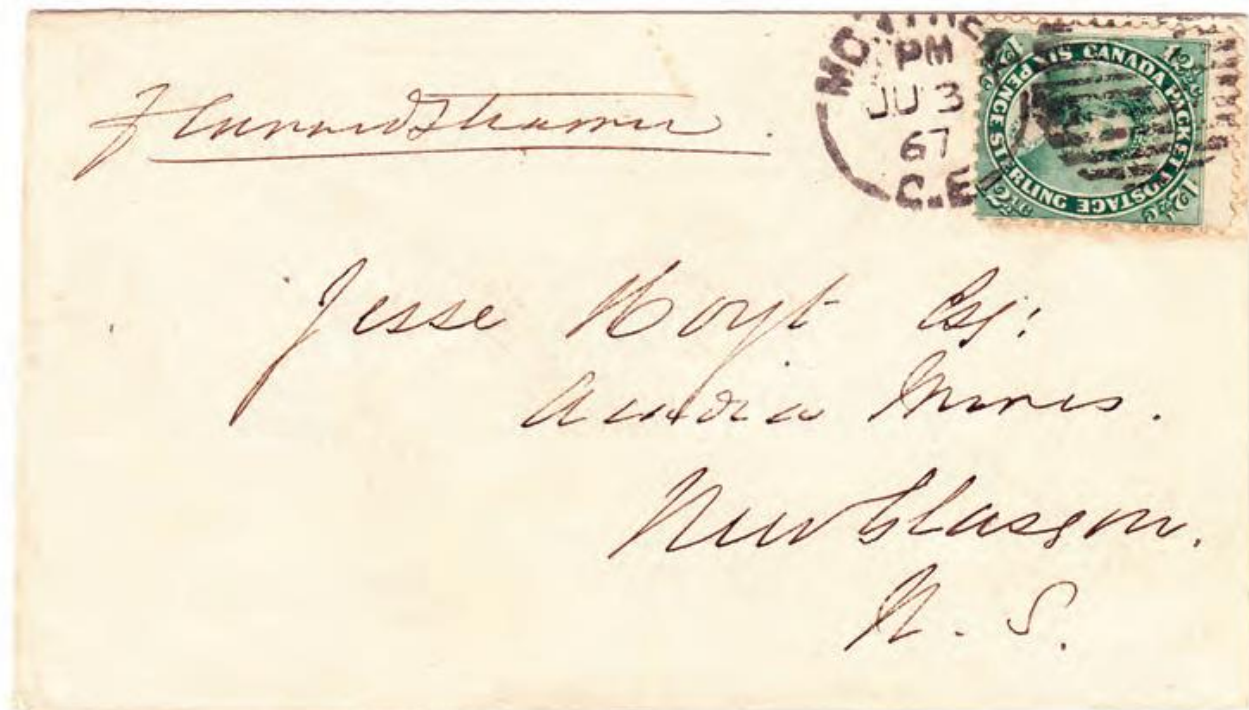 p Cunard Steamer
MONTREAL
PM
JU 3
67
C.E
CANADA PACKET POSTAGE
SIX PENCE STERLING
12½c 12½c
12½c 12½c
Jesse Hoyt Esq:
Acadia Mines.
New Glasgow.
N. S.